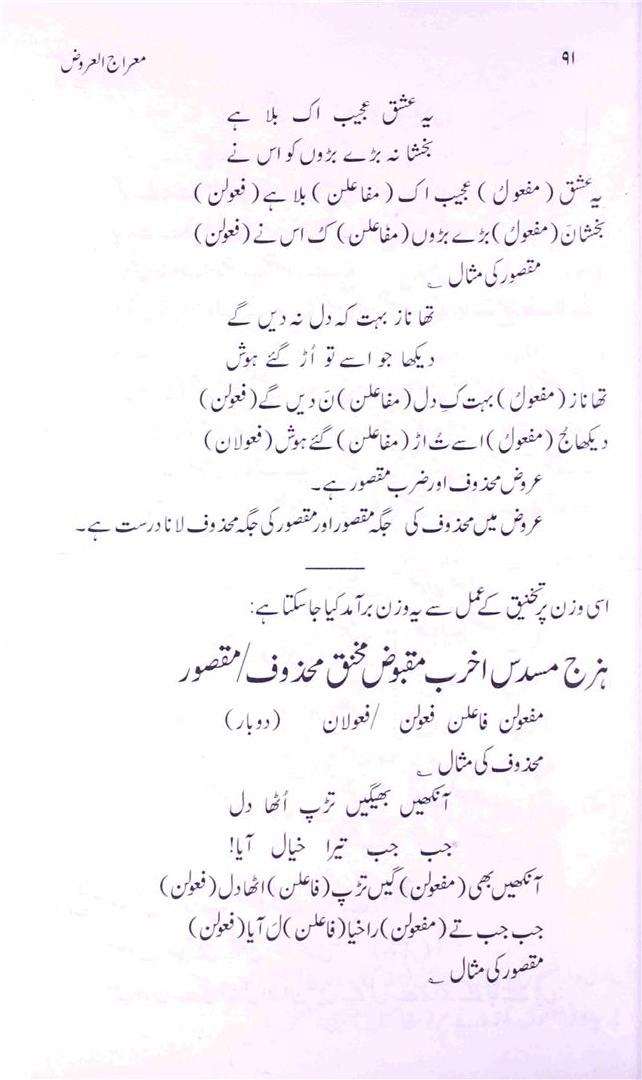 ۹۱
معراج العروض
یہ عشق عجیب اک بلا ہے
بخشا نہ بڑے بڑوں کو اس نے
یہ عشق (مفعولُ) عجیب اک (مفاعلن) بلا ہے (فعولن)
بخشا نَ (مفعولُ) بڑے بڑوں (مفاعلن) کُ اس نے (فعولن)
مقصور کی مثال ؎
تھا ناز بہت کہ دل نہ دیں گے
دیکھا جو اسے تو اُڑ گئے ہوش
تھا ناز (مفعولُ) بہت کِ دل (مفاعلن) نَ دیں گے (فعولن)
دیکھا جُ (مفعولُ) اسے تُ اڑ (مفاعلن) گئے ہوش (فعولان)
عروض محذوف اور ضرب مقصور ہے۔
عروض میں محذوف کی جگہ مقصور اور مقصور کی جگہ محذوف لانا درست ہے۔
اسی وزن پر تخنیق کے عمل سے یہ وزن برآمد کیا جا سکتا ہے:
ہزج مسدس اخرب مقبوض مخنق محذوف/مقصور
مفعولن فاعلن فعولن /فعولان (دو بار)
محذوف کی مثال ؎
آنکھیں بھیگیں تڑپ اُٹھا دل
جب جب تیرا خیال آیا!
آنکھیں بھی (مفعولن) گیں تڑپ (فاعلن) اٹھا دل (فعولن)
جب جب تے (مفعولن) را خیا (فاعلن) ل آیا (فعولن)
مقصور کی مثال ؎